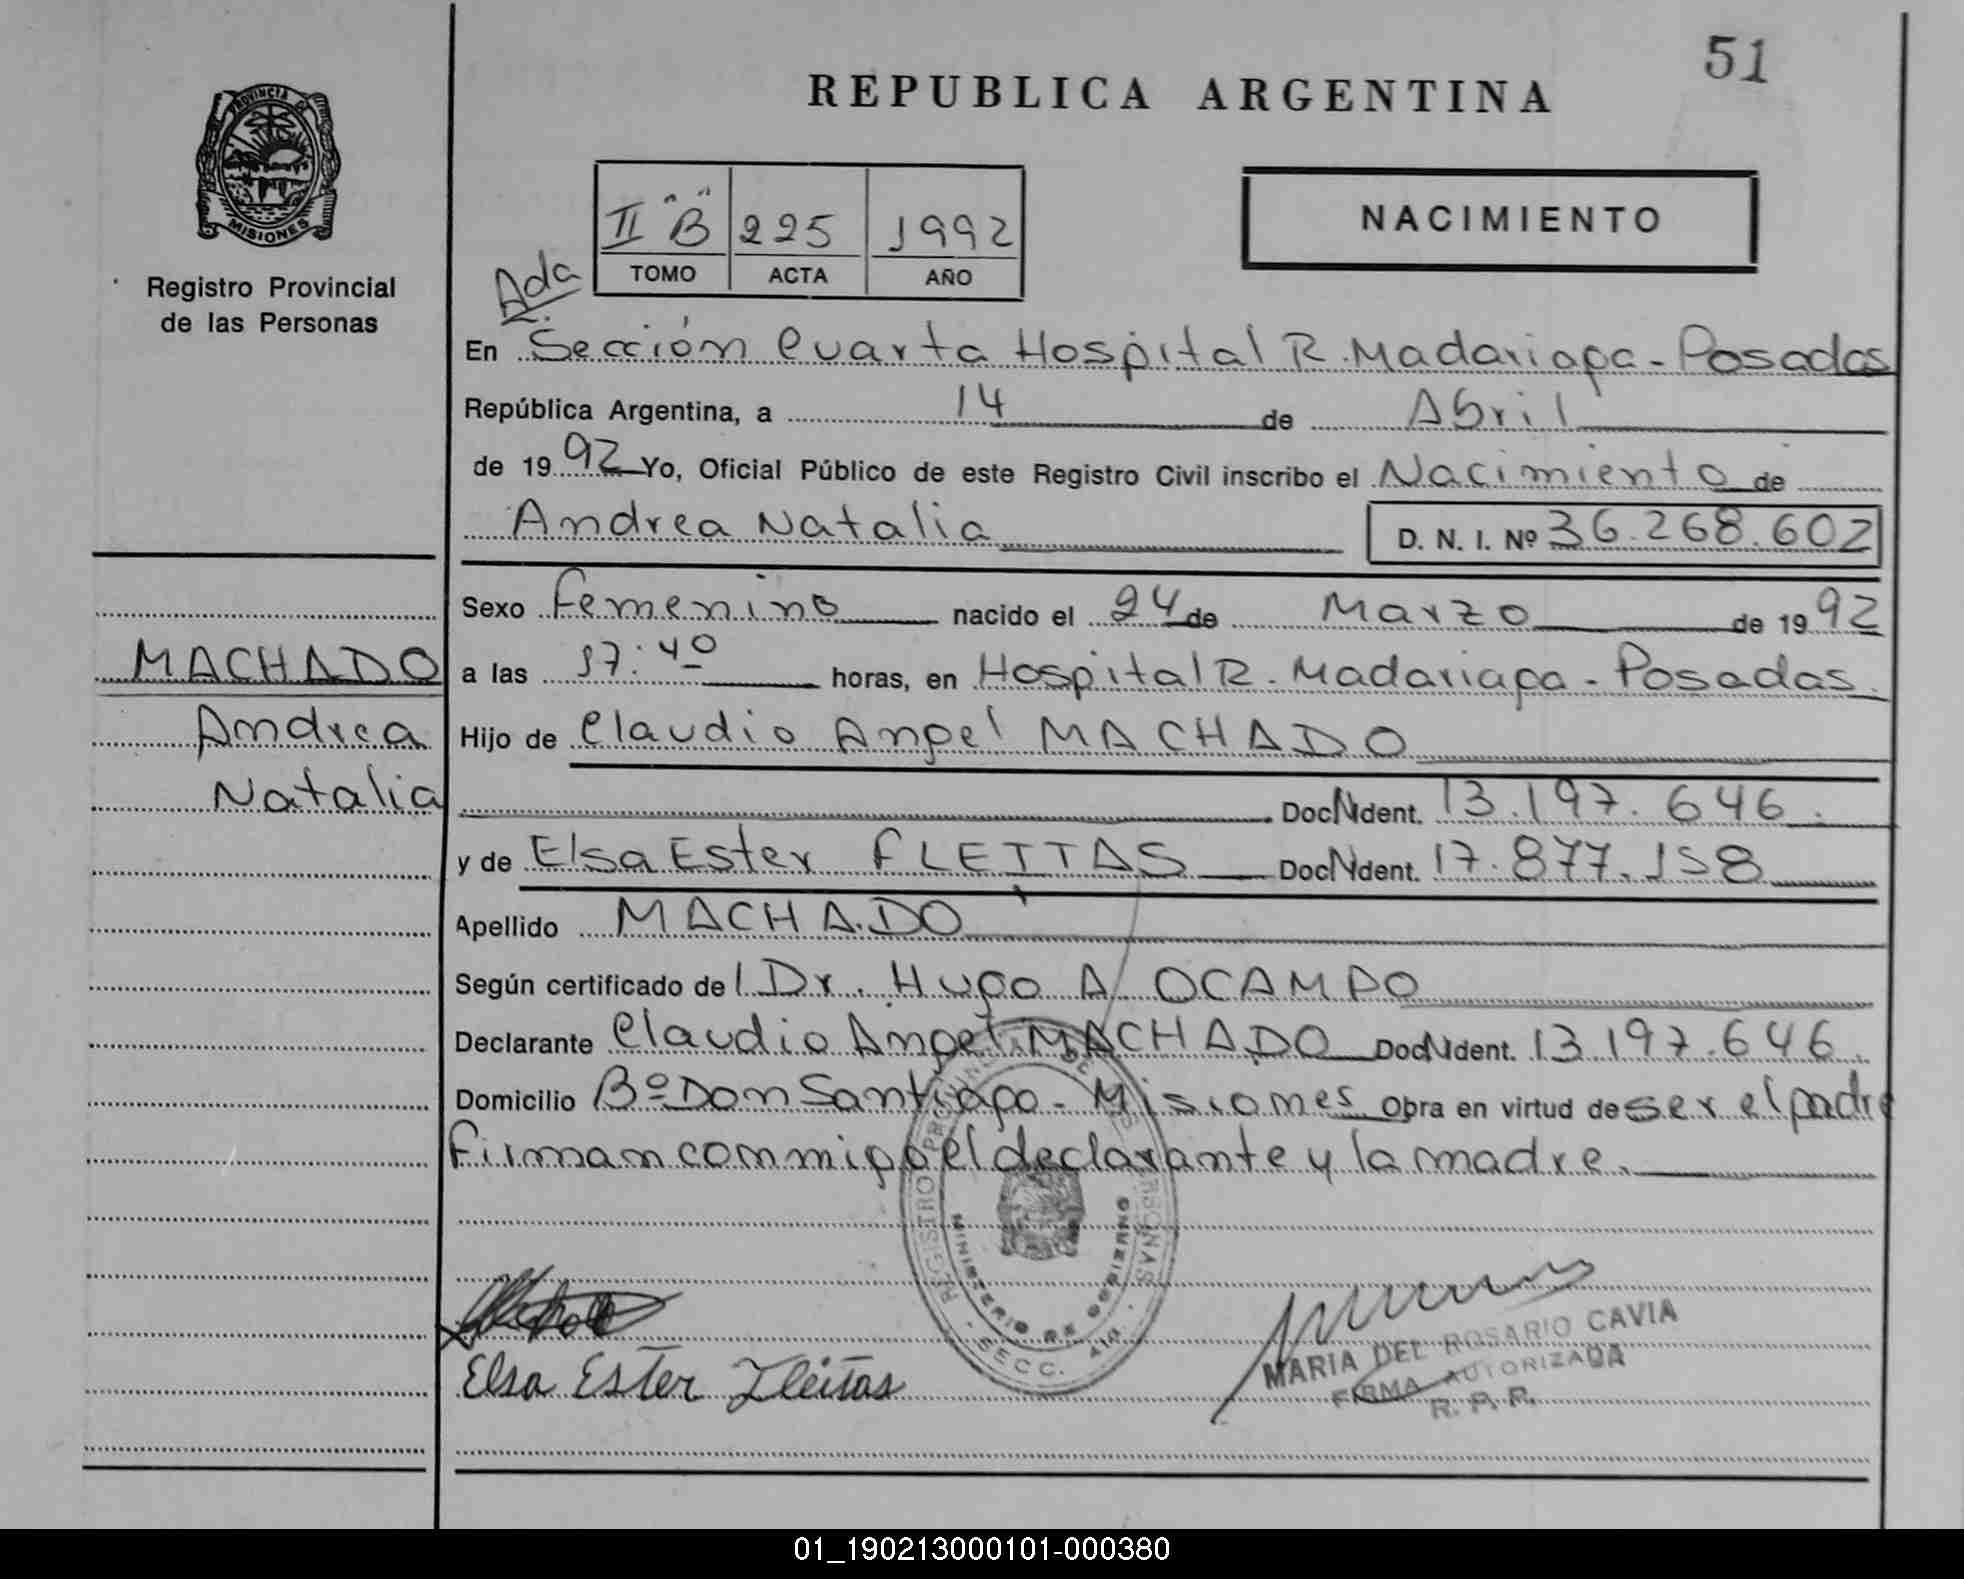 51
REPUBLICA ARGENTINA
PROVINCIA DE
MISIONES
Registro Provincial
de las Personas
II "B" 225 1992
TOMO ACTA AÑO
NACIMIENTO
Ada
En Sección Cuarta Hospital R. Madariaga - Posadas
República Argentina, a 14 de Abril
de 1992 Yo, Oficial Público de este Registro Civil inscribo el Nacimiento de
Andrea Natalia D. N. I. Nº 36.268.602
Sexo Femenino nacido el 24 de Marzo de 1992
a las 17:40 horas, en Hospital R. Madariaga - Posadas.
Hijo de Claudio Angel MACHADO
Doc. Ident. 13.197.646.
y de Elsa Ester FLEITAS Doc. Ident. 17.877.158
Apellido MACHADO
Según certificado del Dr. Hugo A. OCAMPO
Declarante Claudio Angel MACHADO Doc. Ident. 13.197.646.
Domicilio Bº Don Santiago - Misiones Obra en virtud de ser el padre
firman conmigo el declarante y la madre.
MACHADO
Andrea
Natalia
REGISTRO PROVINCIAL DE LAS PERSONAS
MINISTERIO DE GOBIERNO
- SECC. 4ta. -
Elsa Ester Fleitas
MARIA DEL ROSARIO CAVIA
FIRMA AUTORIZADA
R. P. P.
01_190213000101-000380